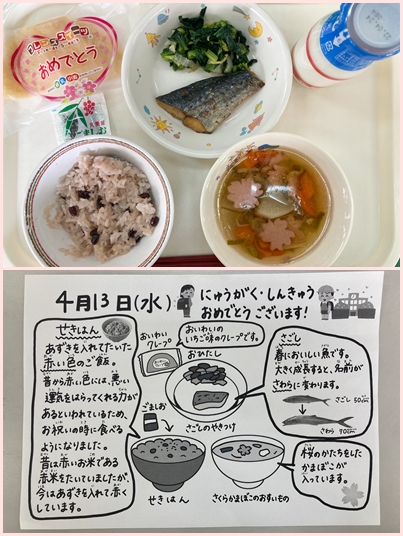 おめでとう
4月13日(水)
にゅうがく・しんきゅう
おめでとう ございます!
せきはん
あずきを入れてたいた
赤い色のご飯。
昔から赤い色には、悪い
運気をはらってくれる力が
あるといわれているため、
お祝いの時に食べる
ようになりました。
昔は赤いお米である
赤米をたいていましたが、
今はあずきを入れて赤く
しています。
おいわい
クレープ
おいわいの
いちご味のクレープです。
おひたし
さごしのやきつけ
ごましお
せきはん
さくらかまぼこのおすいもの
さごし
春においしい魚です。
大きく成長すると、名前が
さわらに変わります。
さごし 50cm
さわら 70cm
桜のかたちをした
かまぼこが
入っています。